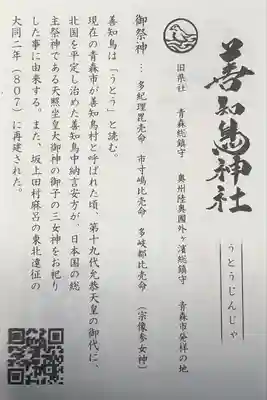 善知鳥神社
うとうじんじゃ
旧県社　青森総鎮守　奥州陸奥國外ヶ濱総鎮守　青森市発祥の地
御祭神 … 多紀理毘売命　市寸嶋比売命　多岐都比売命　（宗像参女神）
善知鳥は「うとう」と読む。
現在の青森市が善知鳥村と呼ばれた頃、第十九代允恭天皇の御代に、
北国を平定し治めた善知鳥中納言安方が、日本国の総
主祭神である天照坐皇大御神の御子の三女神をお祀り
した事に由来する。また、坂上田村麻呂の東北遠征の
大同二年（８０７）に再建された。